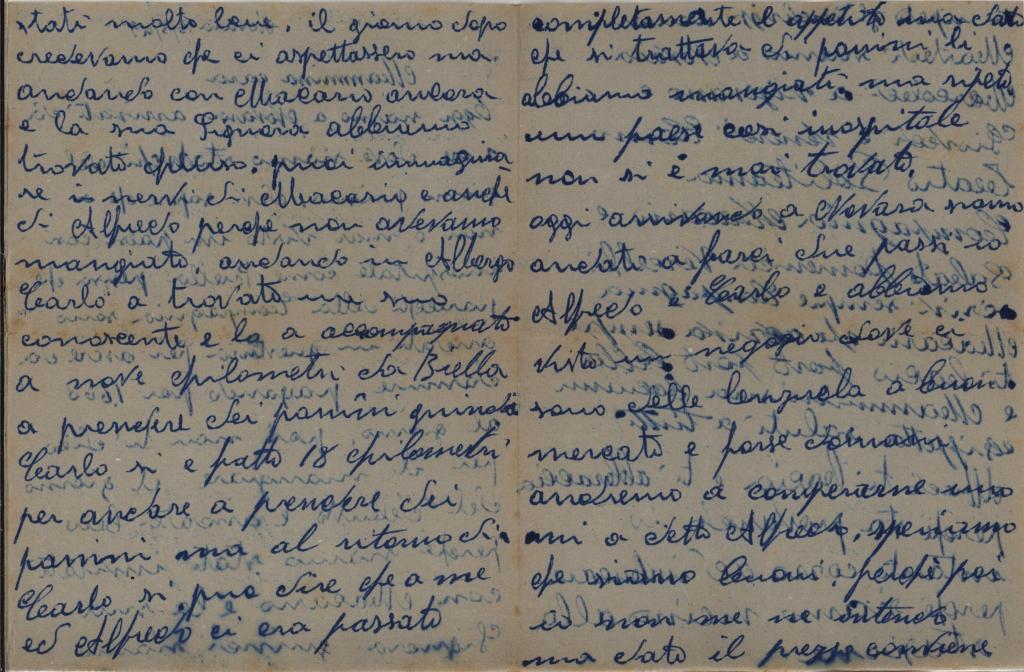 stati molto bene, il giorno dopo
credevamo che ci aspettassero ma
andando con Macario ancora
e la sua Signora abbiamo
trovato chiuso, puoi immagina
re i nervi di Macario e anche
di Alfredo perche non avevamo
mangiato, andando in Albergo
Carlo a trovato un suo
conoscente e lo a accompagnato
a nove chilometri da Biella
a prendere dei panini quindi
Carlo si e fatto 18 chilometri
per andare a prendere dei
panini ma al ritorno di
Carlo si puo dire che a me
ed Alfredo ci era passato
completamente l appetito ma dato
che si trattava di panini li
abbiamo mangiati, ma ripeto
un paese cosi inospitale
non si è mai trovato,
oggi arrivando a Novara siamo
andati a farci due passi io
Alfredo e Carlo e abbiamo
visto un negozio dove ci
sono delle lenzuola a buon
mercato e forse domani
andremo a comperarne
mi a detto Alfredo, speriamo
che siano buoni, perche poi
io non me ne intendo
ma dato il prezzo conviene